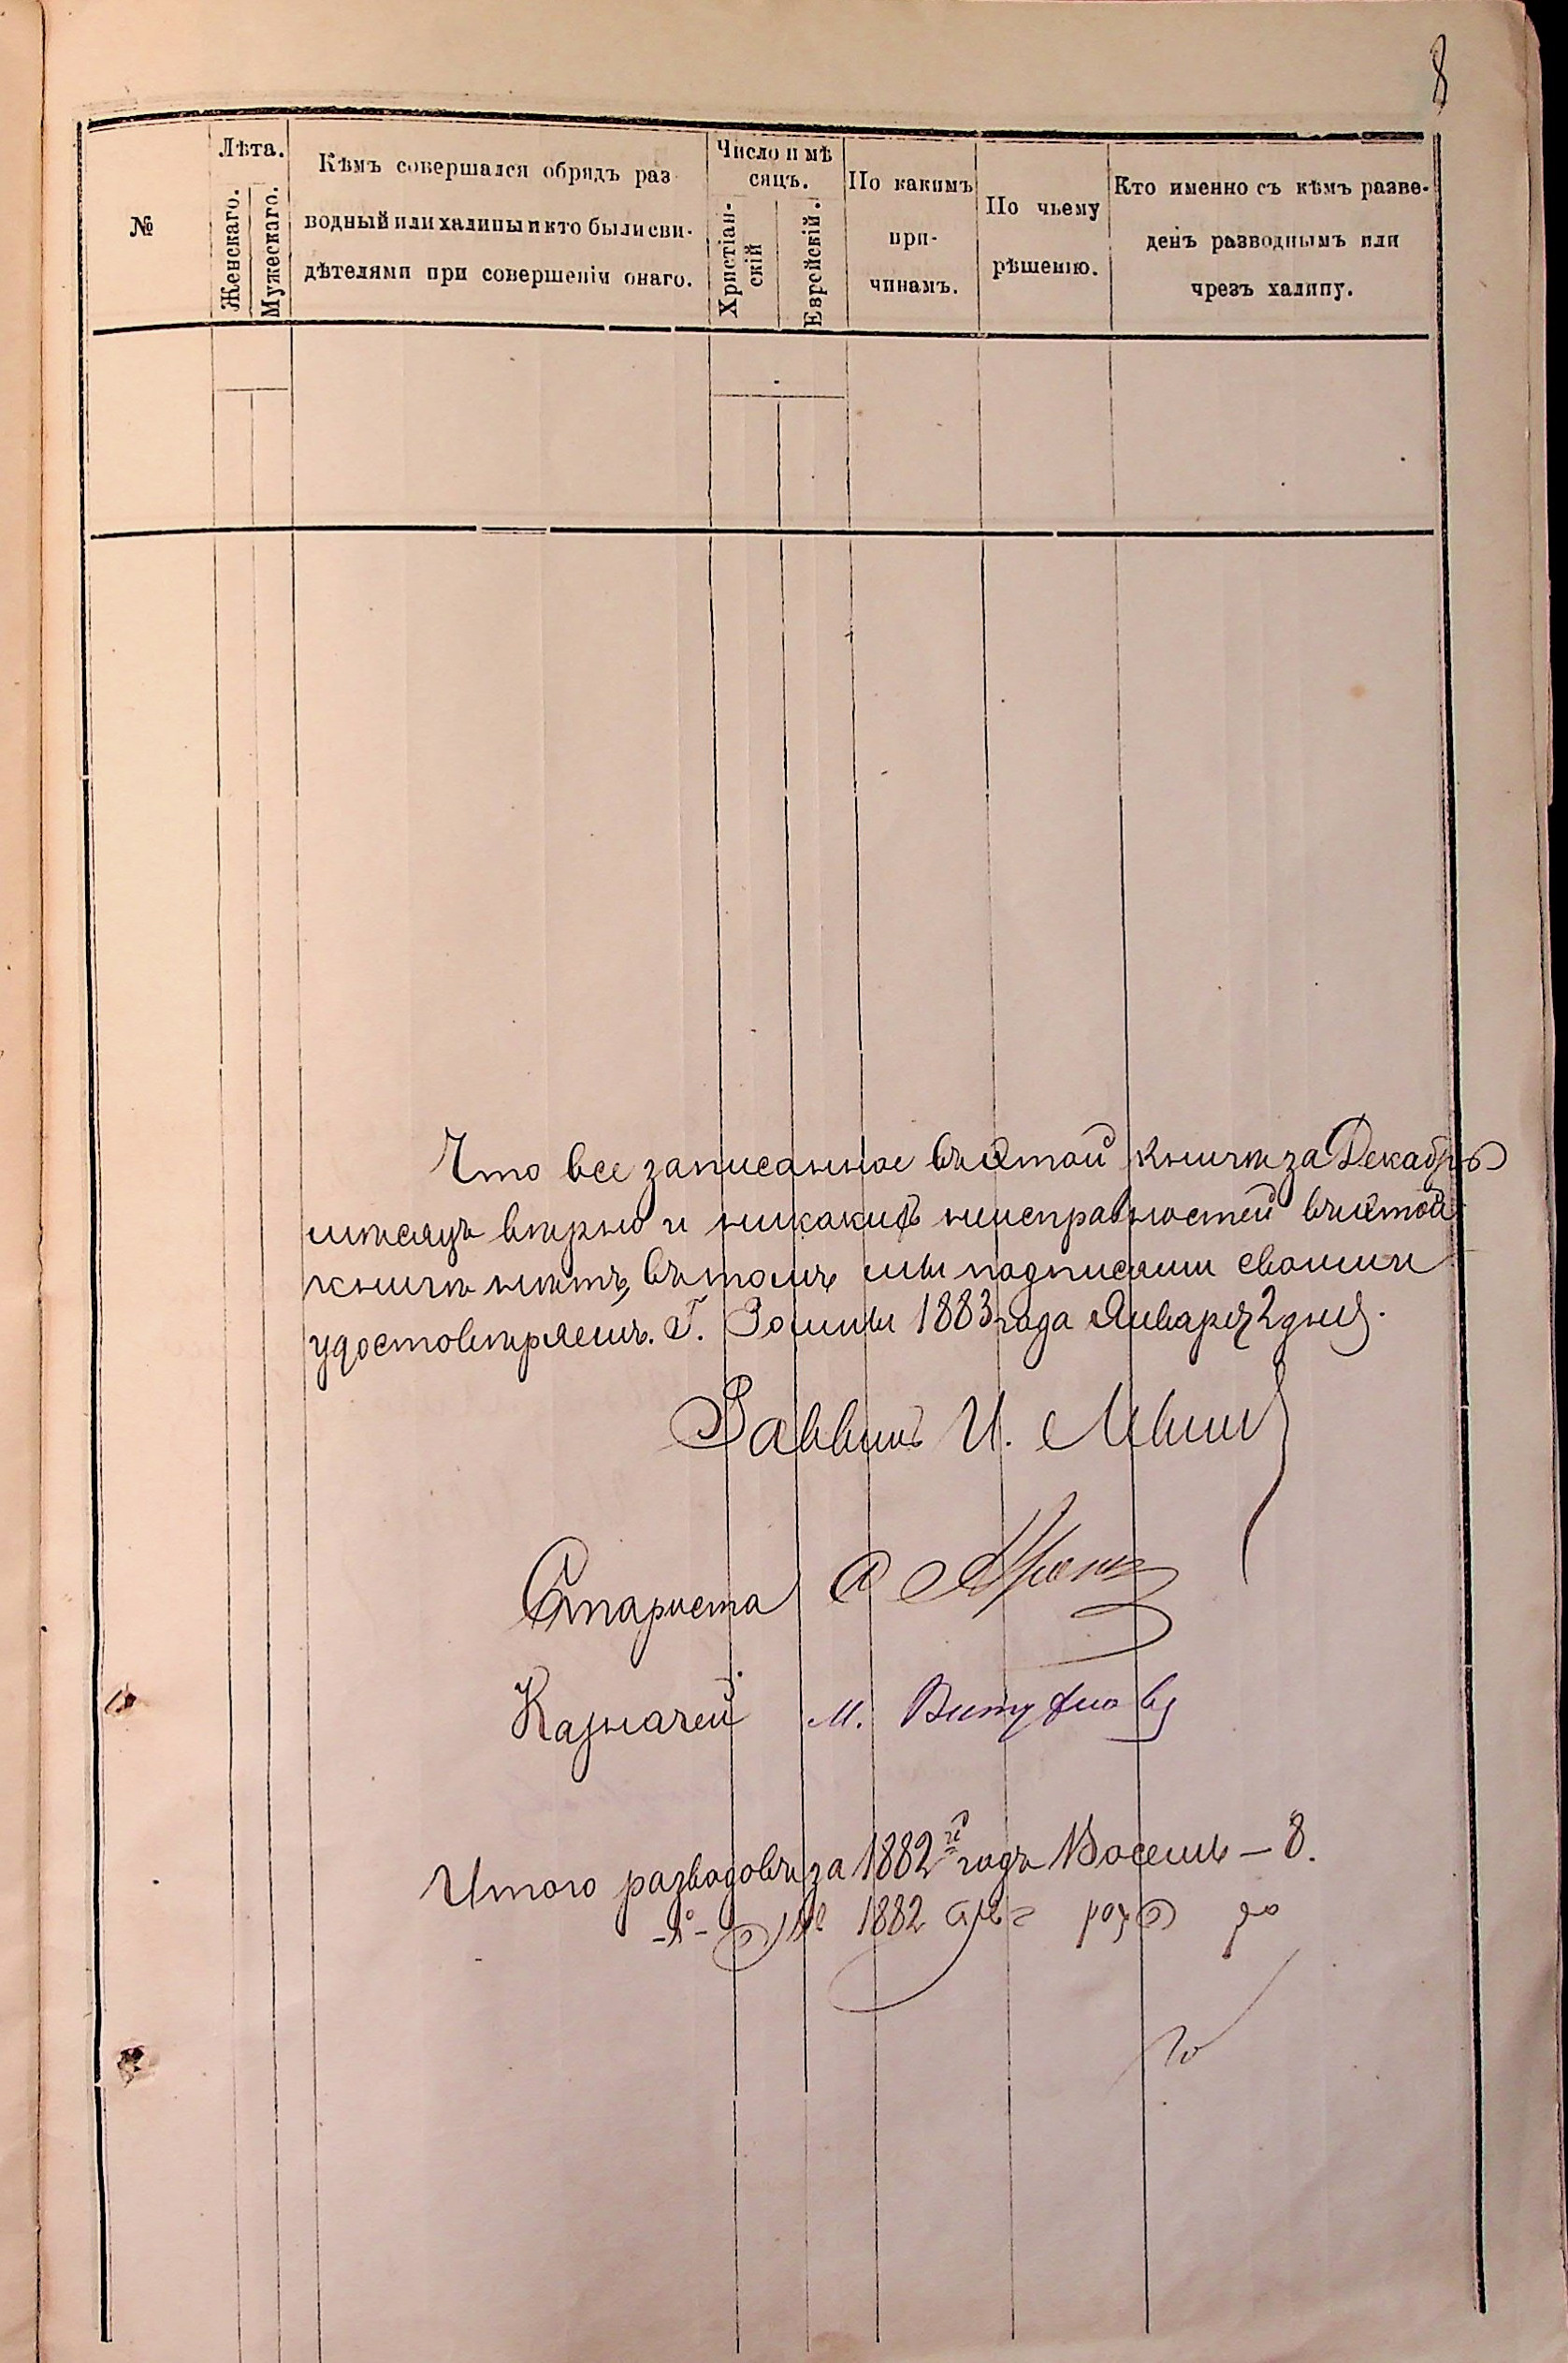 8
№
Лѣта.
Женскаго.
Мужескаго.
Кѣмъ совершался обрядъ раз-
водный или халицы и кто были сви-
дѣтелями при совершеніи онаго.
Число и мѣ
сяцъ.
Христіан-
скій
Еврейскій.
По какимъ
при-
чинамъ.
По чьему
рѣшенію.
Кто именно съ кѣмъ разве-
денъ разводнымъ или
чрезъ халицу.
Что все записанное въ этой книгѣ за Декабрь
мѣсяцъ вѣрно и никакихъ неисправностей въ этой
книгѣ нѣтъ, въ томъ мы подписями своими
удостовѣряемъ. Г. Ромны 1883 года Января 2 дня.
Раввинъ И.
Староста
Казначей М.
Итого разводовъ за 1882й годъ Восемь – 8.
1882